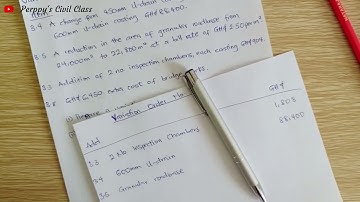 Perppy's Civil Class
3.4 A change from 450mm U-drain
600mm U-drain costing GH¢ 88,400.
3.5 A reduction in the area of granular subbase from
24,000m² to 22,800m² at a bill rate of GH¢ 2.50 per m²
3.3 Addition of 2 no. inspection chambers, each costing GH¢ 904.
3.8 GH¢ 6,450 extra cost of bridge works.
Variation Order No
GH¢
Add
3.3 2 No. Inspection Chambers 1,808
3.4 600mm U-drain 88,400
3.5 Granular subbase